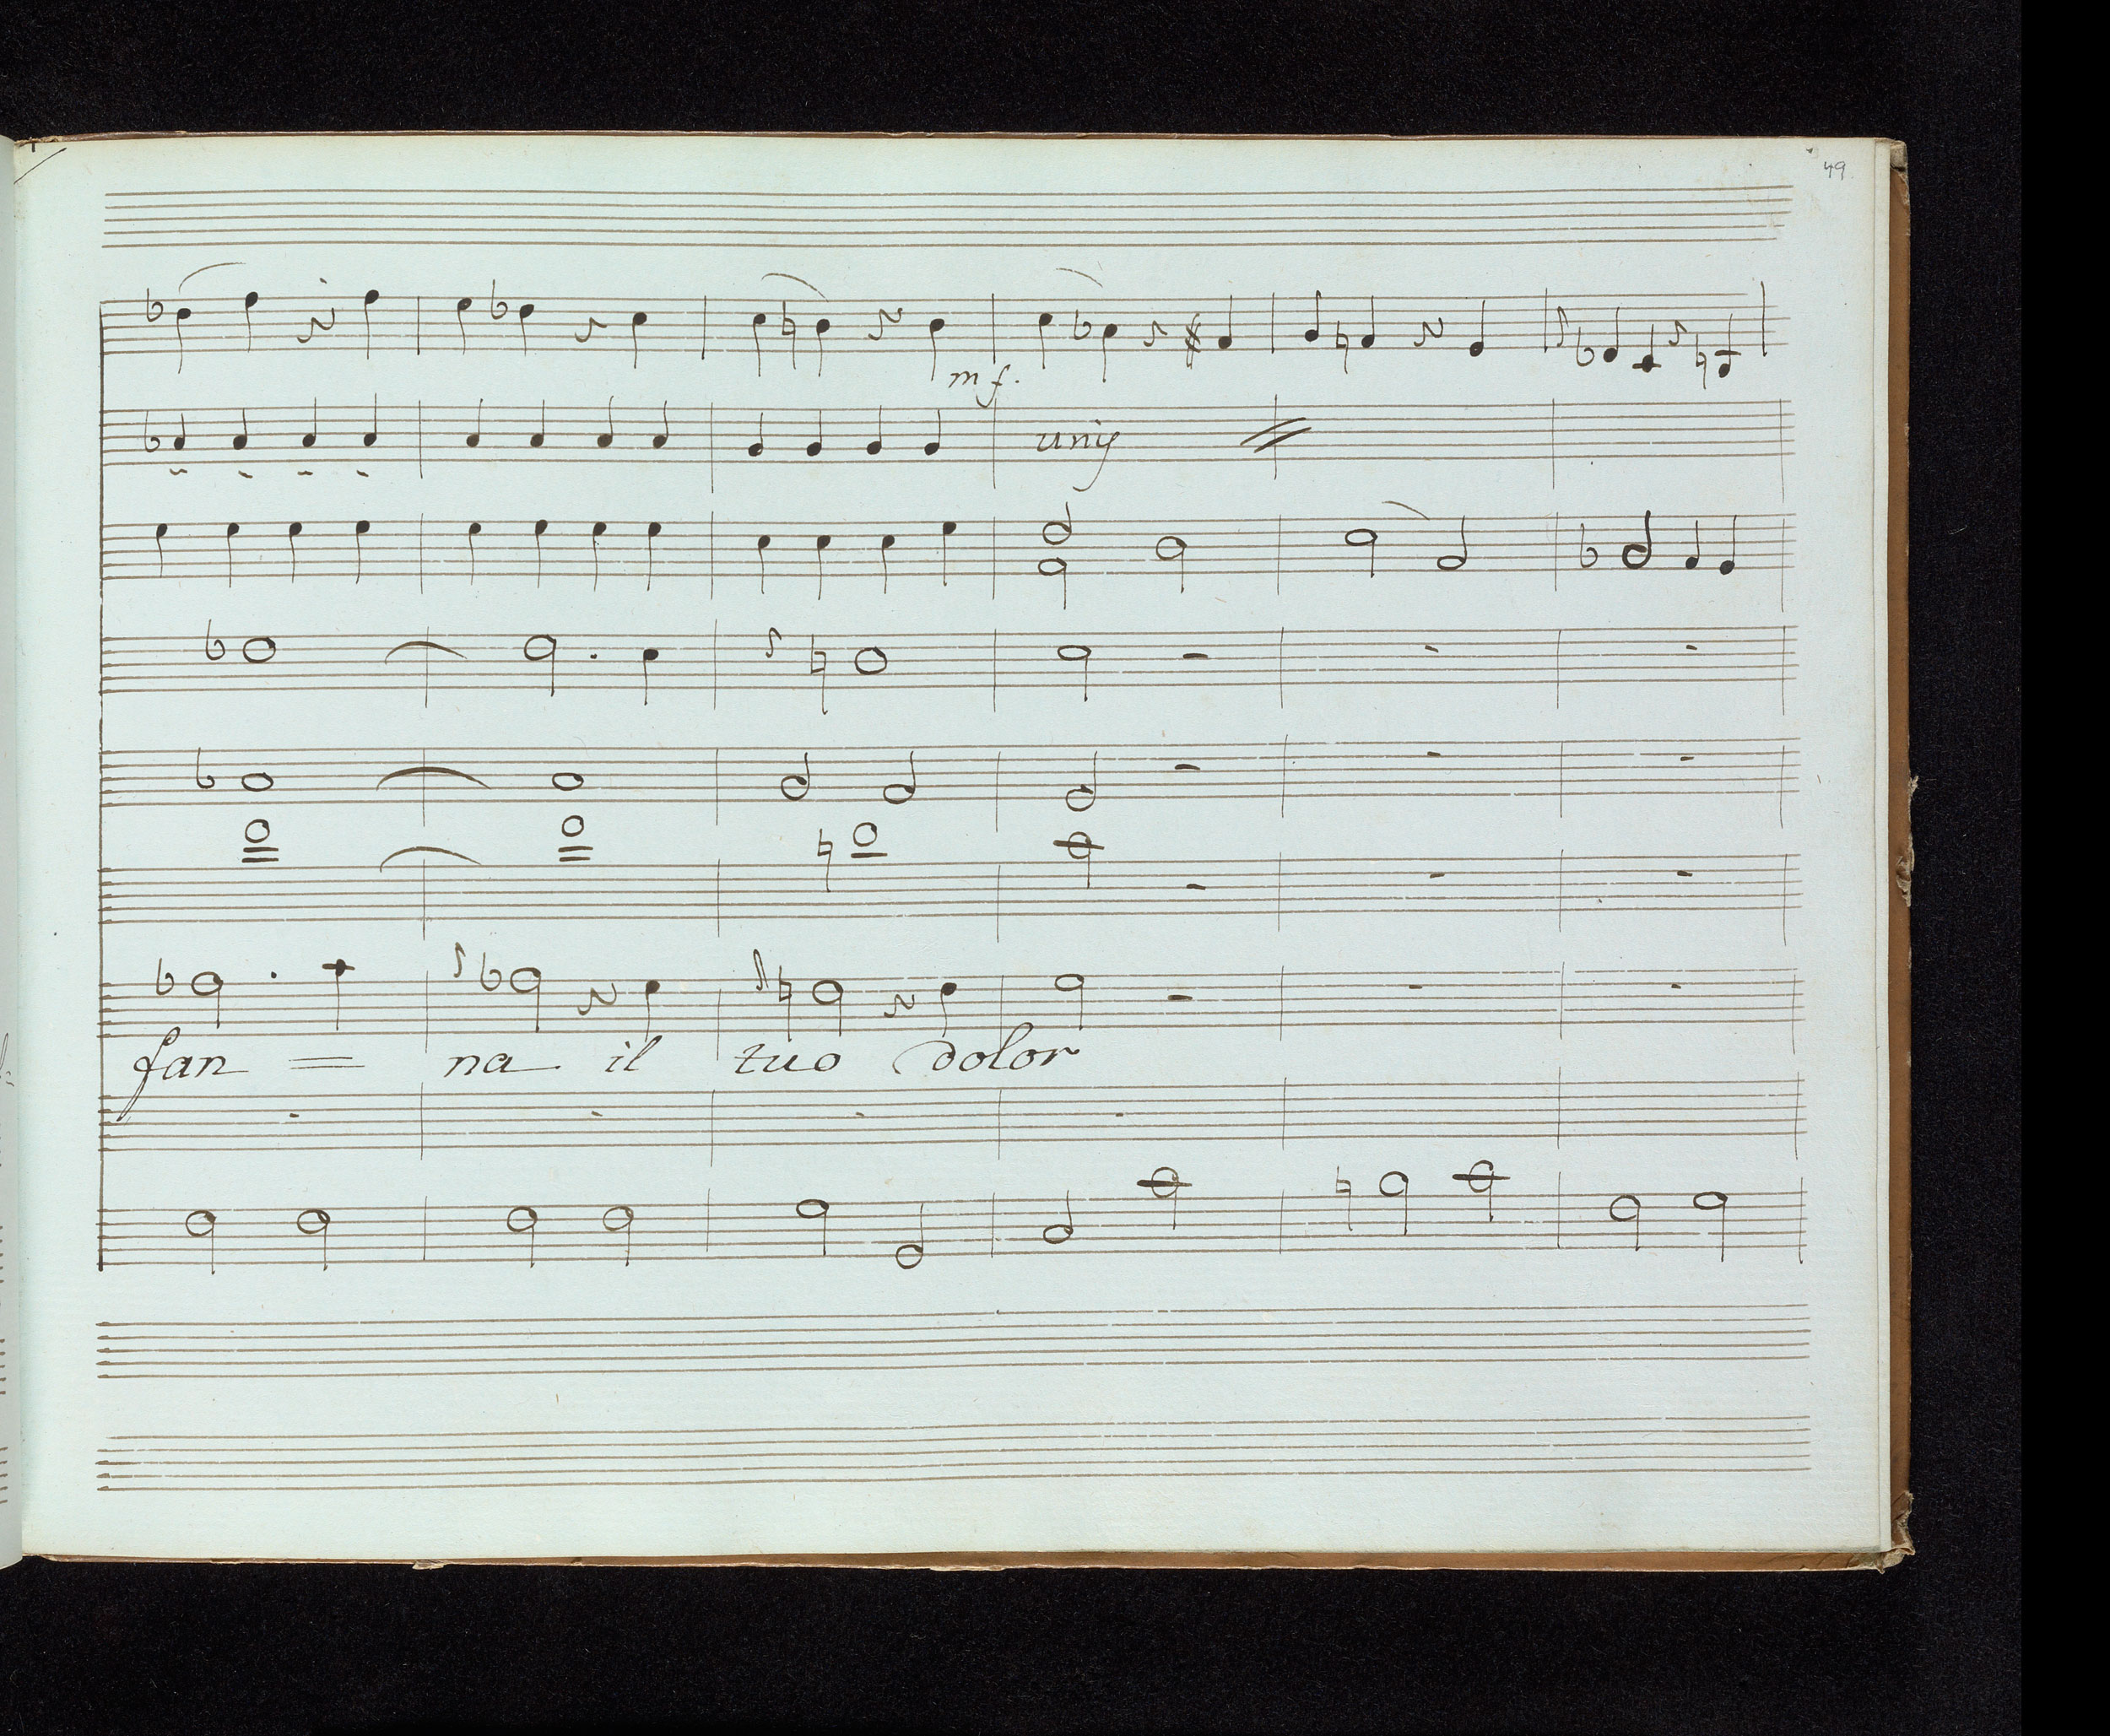 49
m f.
unis
fan = na il tuo dolor